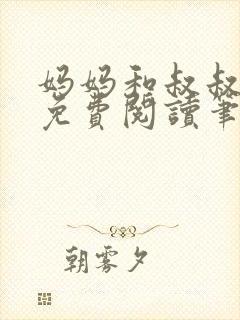 妈妈和叔叔
免費閱讀筆
朝雾夕